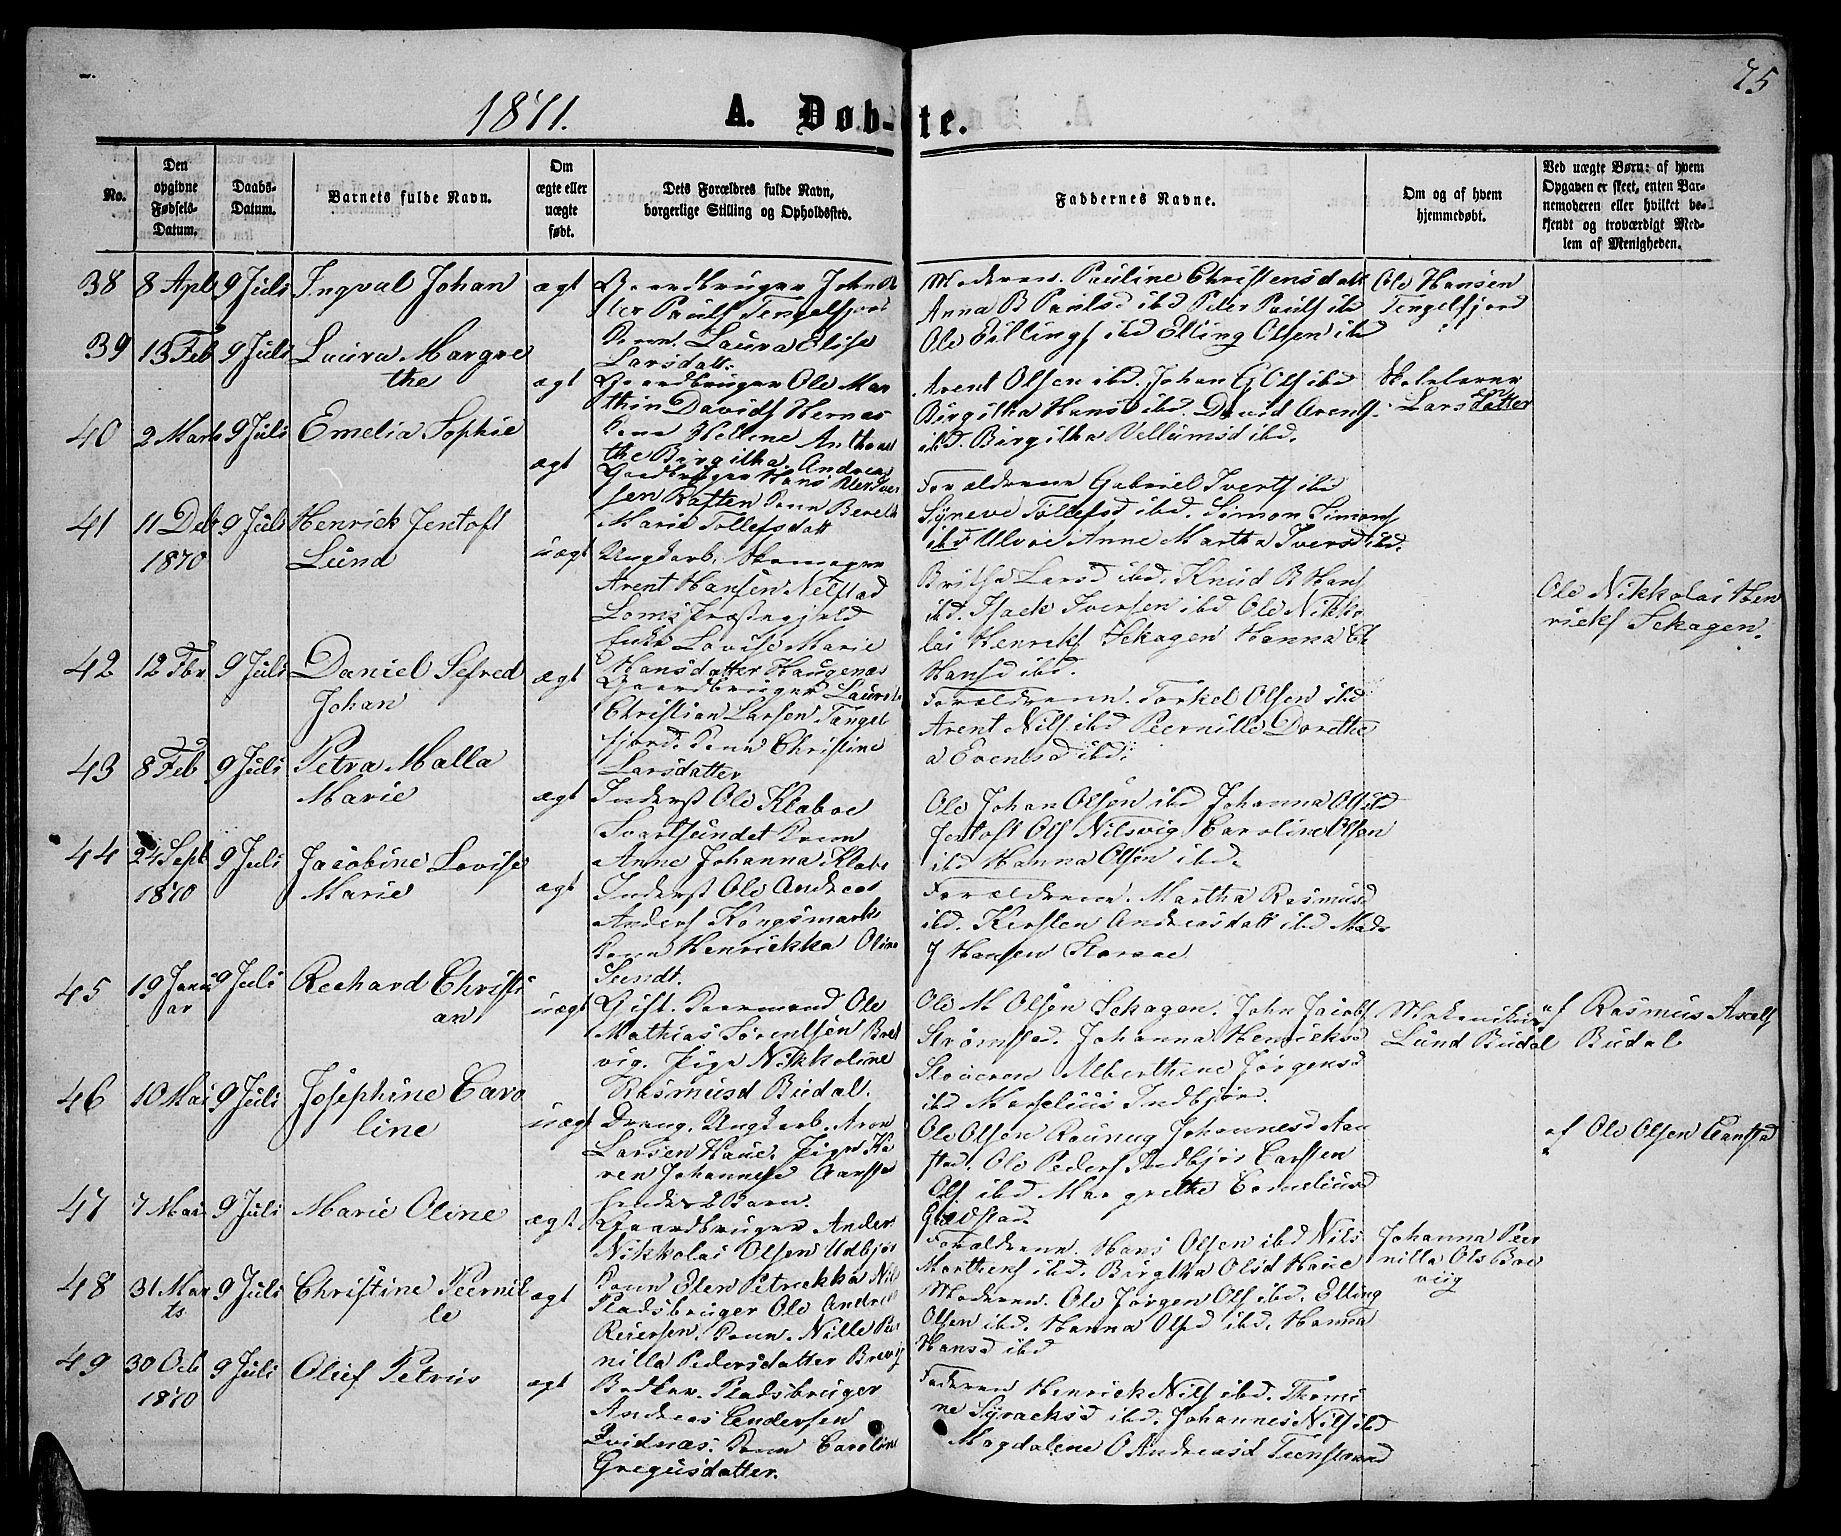 75
1871.
A. Døb-te.
No.
Den opgivne Fødsels-Datum.
Daabs-Datum.
Barnets fulde Navn.
Om ægte eller uægte født.
Dets Forældres fulde Navn, borgerlige Stilling og Opholdssted.
Faddernes Navne.
Om og af hvem hjemmedøbt.
Ved uægte Børn: af hvem Opgaven er skeet, enten Barnemoderen eller hvilket bekjendt og troværdigt Medlem af Menigheden.
38 8 Apl 9 Juli Ingval Johan ægt
Gaardbruger John
Pauls Tengelfjord
Kone. Laura Elise
Larsdatt.
Moderen. Pauline Christensdatt
Anna B Paulsd ibd Peter Pauls ibd
Ole Ellings ibd Elling Olsen ibd
Ole Hansen
Tengelfjord
39 13 Feb 9 Juli Laura Margre
the ægt
Gaardbruger Ole Mar
thin Davids Hernæs
Kone Hellene Anthone
the Birgitha Andrea
Arent Olsen ibd. Johan G Ols ibd
Birgitha Hansd ibd. David Arents.
ibd. Birgitha Vellumsd ibd.
Skolelærer
Lars
40 2 Marts 9 Juli Emelia Sophie ægt
Gaardbruger Hans Peter Iver
sen Raften Kone Berelt
Marie Tollefsdatt
Forældrene Gabriel Iverts ibd
Syneve Tollefsd ibd. Simon Simons
ibd Ulvøe Anne Martha Iversd ibd.
41 11 Debr 9 Juli Henrick Jentoft
1870 Lund uægt
Ungkarl. Skomager
Arent Hansen Nelstad
Loms Præstegjeld
Enke Lovise Marie
Hansdatter Haugenæs
Britha Larsd ibd. Knud B Hans
ibd. Isack Iversen ibd Ole Nikko
lai Henriks Skagen Hanna E
Hansd ibd.
Ole Nikkolai Hen
ricks Skagen.
42 12 Fbr 9 Juli Daniel Sefred
Johan ægt
Gaardbruger Laurits
Christian Larsen Tangel
fjord. Kone Christine
Larsdatter
Forældrene. Torkel Olsen ibd
Arent Nils ibd Peernille Dorethe
a Evensd ibd.
43 8 Feb 9 Juli Petra Malla
Marie ægt
Inderst Ole Klaboe
Svartsundet Kone
Anne Johanna Klabo
Ole Johan Olsen ibd Johanna Olsd
Jentoft Ols Nilsvig Caroline Olsen
ibd Hanna Olsen ibd.
44 24 Sept 9 Juli Jacobine Lovise
1870 Marie ægt
Inderst Ole Andreas
Anders Kongsmark
Kone Henriekka Oline
Sundt.
Forældrene. Martha Rasmusd
ibd. Kirsten Andreasdatt ibd Mads
J Hansen Korsøe
45 19 Janu 9 Juli Rechard Christi
ar an uægt
Gift. Kaarmand Ole
Mathias Sørensen Bret
vig. Pige Nikkoline
Rasmusd Budal.
Ole M Olsen Skagen. John Jacobs
Strømsted. Johanna Henricksd
Støveren Alberthine Jørgensd
ibd Marselius Indbjørd.
Mekenikus
Lund Budal
af Rasmus Axels
Budal
46 10 Mai 9 Juli Josephine Caro
line uægt
Dreng. Ungkarl. Aron
Larsen Haue. Pige Ka
ren Johannesd Aarstad
hendes 2 Barn.
Ole Olsen Raunug Johannesd Aar
stad. Ole Peders Indbjør Carsten
Ols. ibd Margrethe Corneliusd
Grædstad.
af Ole Olsen Aarstad
47 7 Mai 9 Juli Marie Oline ægt.
Gaardbruger Anders
Nikkolai Olsen Udbjør
Kone Elen Petrekka Nils
Forældrene. Hans Olsen ibd Nils
Marthens ibd. Birgitha Olsd Haue
Johanna Peer
nilla Ols Bre
viig
48 31 Mar 9 Juli Christine Peernil
ts le ægt
Pladsbruger Ole Andreas
Reiersen. Kone. Nille Peer
nilla Pedersdatter Brevig
Moderen. Ole Jørgen Ols ibd. Elling
Olsen ibd. Hanna Olsd ibd. Hanna
Hansd ibd
49 30 Oct 9 Juli Oluf Petrus
1870 ægt
Bødker. Pladsbruger
Andreas Andersen
Kvidnæs. Kone Caroline
Gregusdatter.
Faderen Henrick Nils ibd. Thomi
ne Syracksd ibd. Johannes Nils ibd
Magdalene O Andreasd Teenstrand